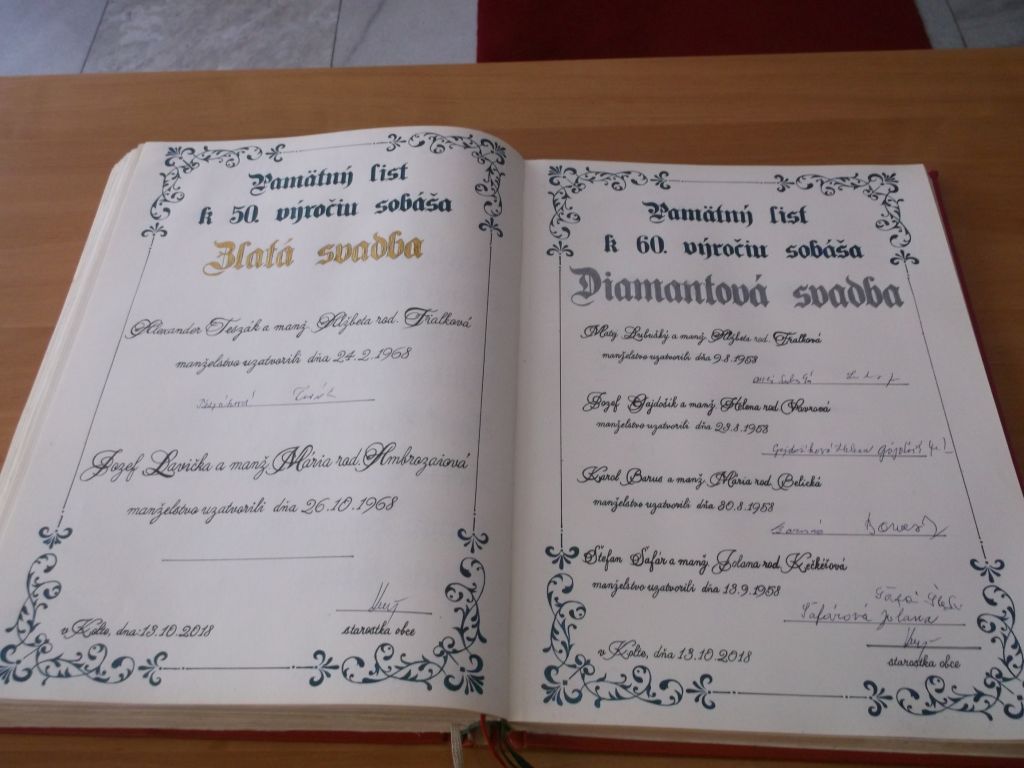 Pamätný list
k 50. výročiu sobáša
Zlatá svadba
Alexander Teszák a manž. Alžbeta rod. Fialková
manželstvo uzatvorili dňa 24.2.1968
Jozef Lavička a manž. Mária rod. Ambrozaiová
manželstvo uzatvorili dňa 26.10.1968
starostka obce
v Kolte, dňa 13.10.2018
Pamätný list
k 60. výročiu sobáša
Diamantová svadba
Matej Ľubušký a manž. Alžbeta rod. Fialková
manželstvo uzatvorili dňa 9.8.1958
Jozef Gajdošík a manž. Helena rod. Vavrová
manželstvo uzatvorili dňa 23.8.1958
Gajdošíková Helena Gajdošík
Karol Barus a manž. Mária rod. Belická
manželstvo uzatvorili dňa 30.8.1958
Štefan Šafár a manž. Jolana rod. Kečkéšová
manželstvo uzatvorili dňa 13.9.1958
Šafárová Jolana
v Kolte, dňa 13.10.2018
starostka obce